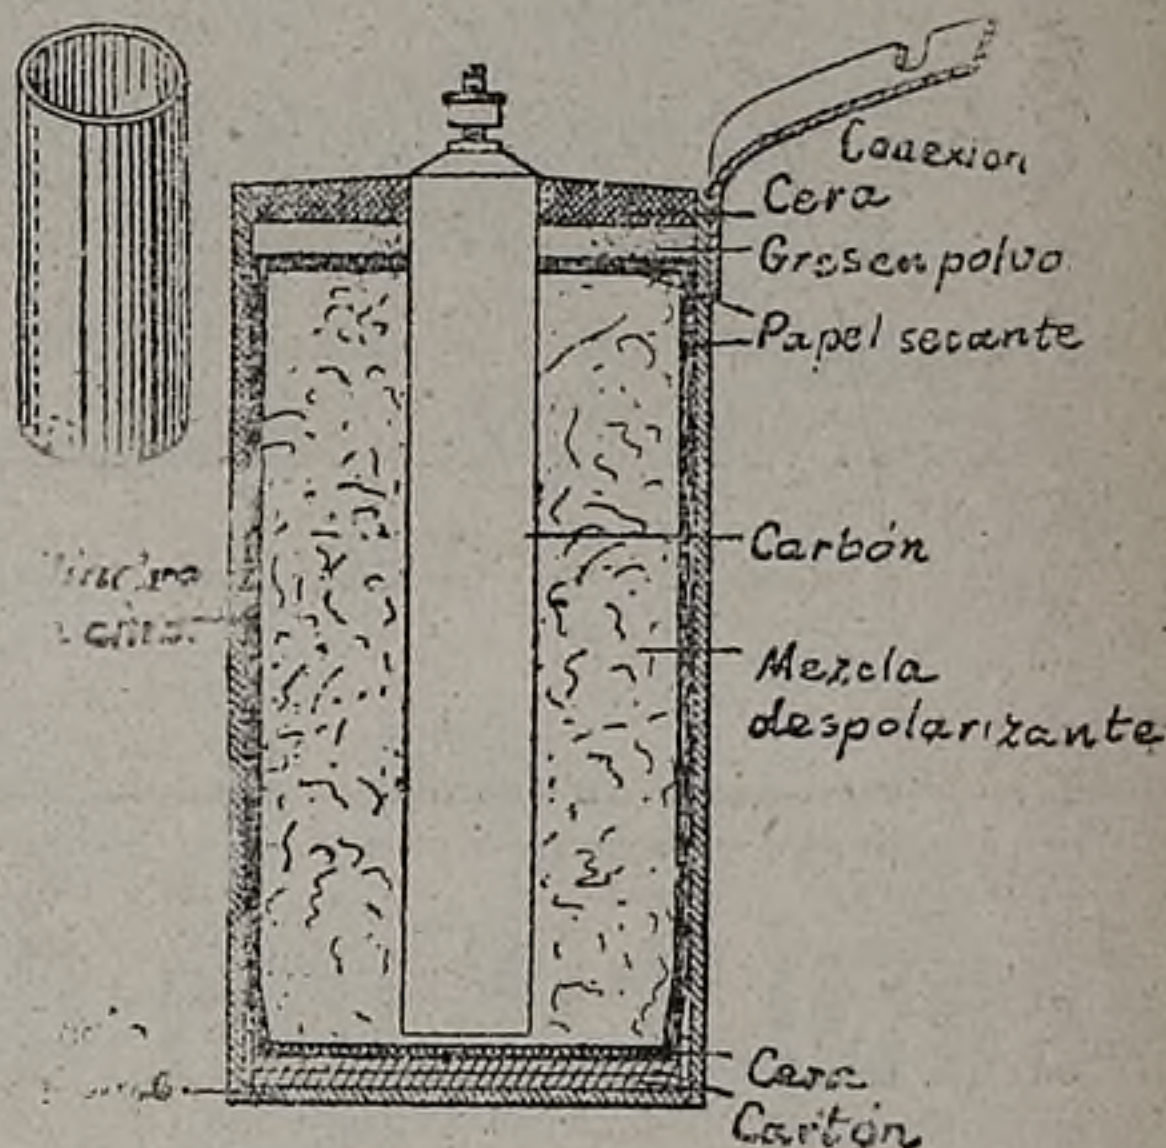 Conexion
Cera
Gres en polvo
Papel secante
Carbón
Mezcla
despolarizante
Cera
Cartón